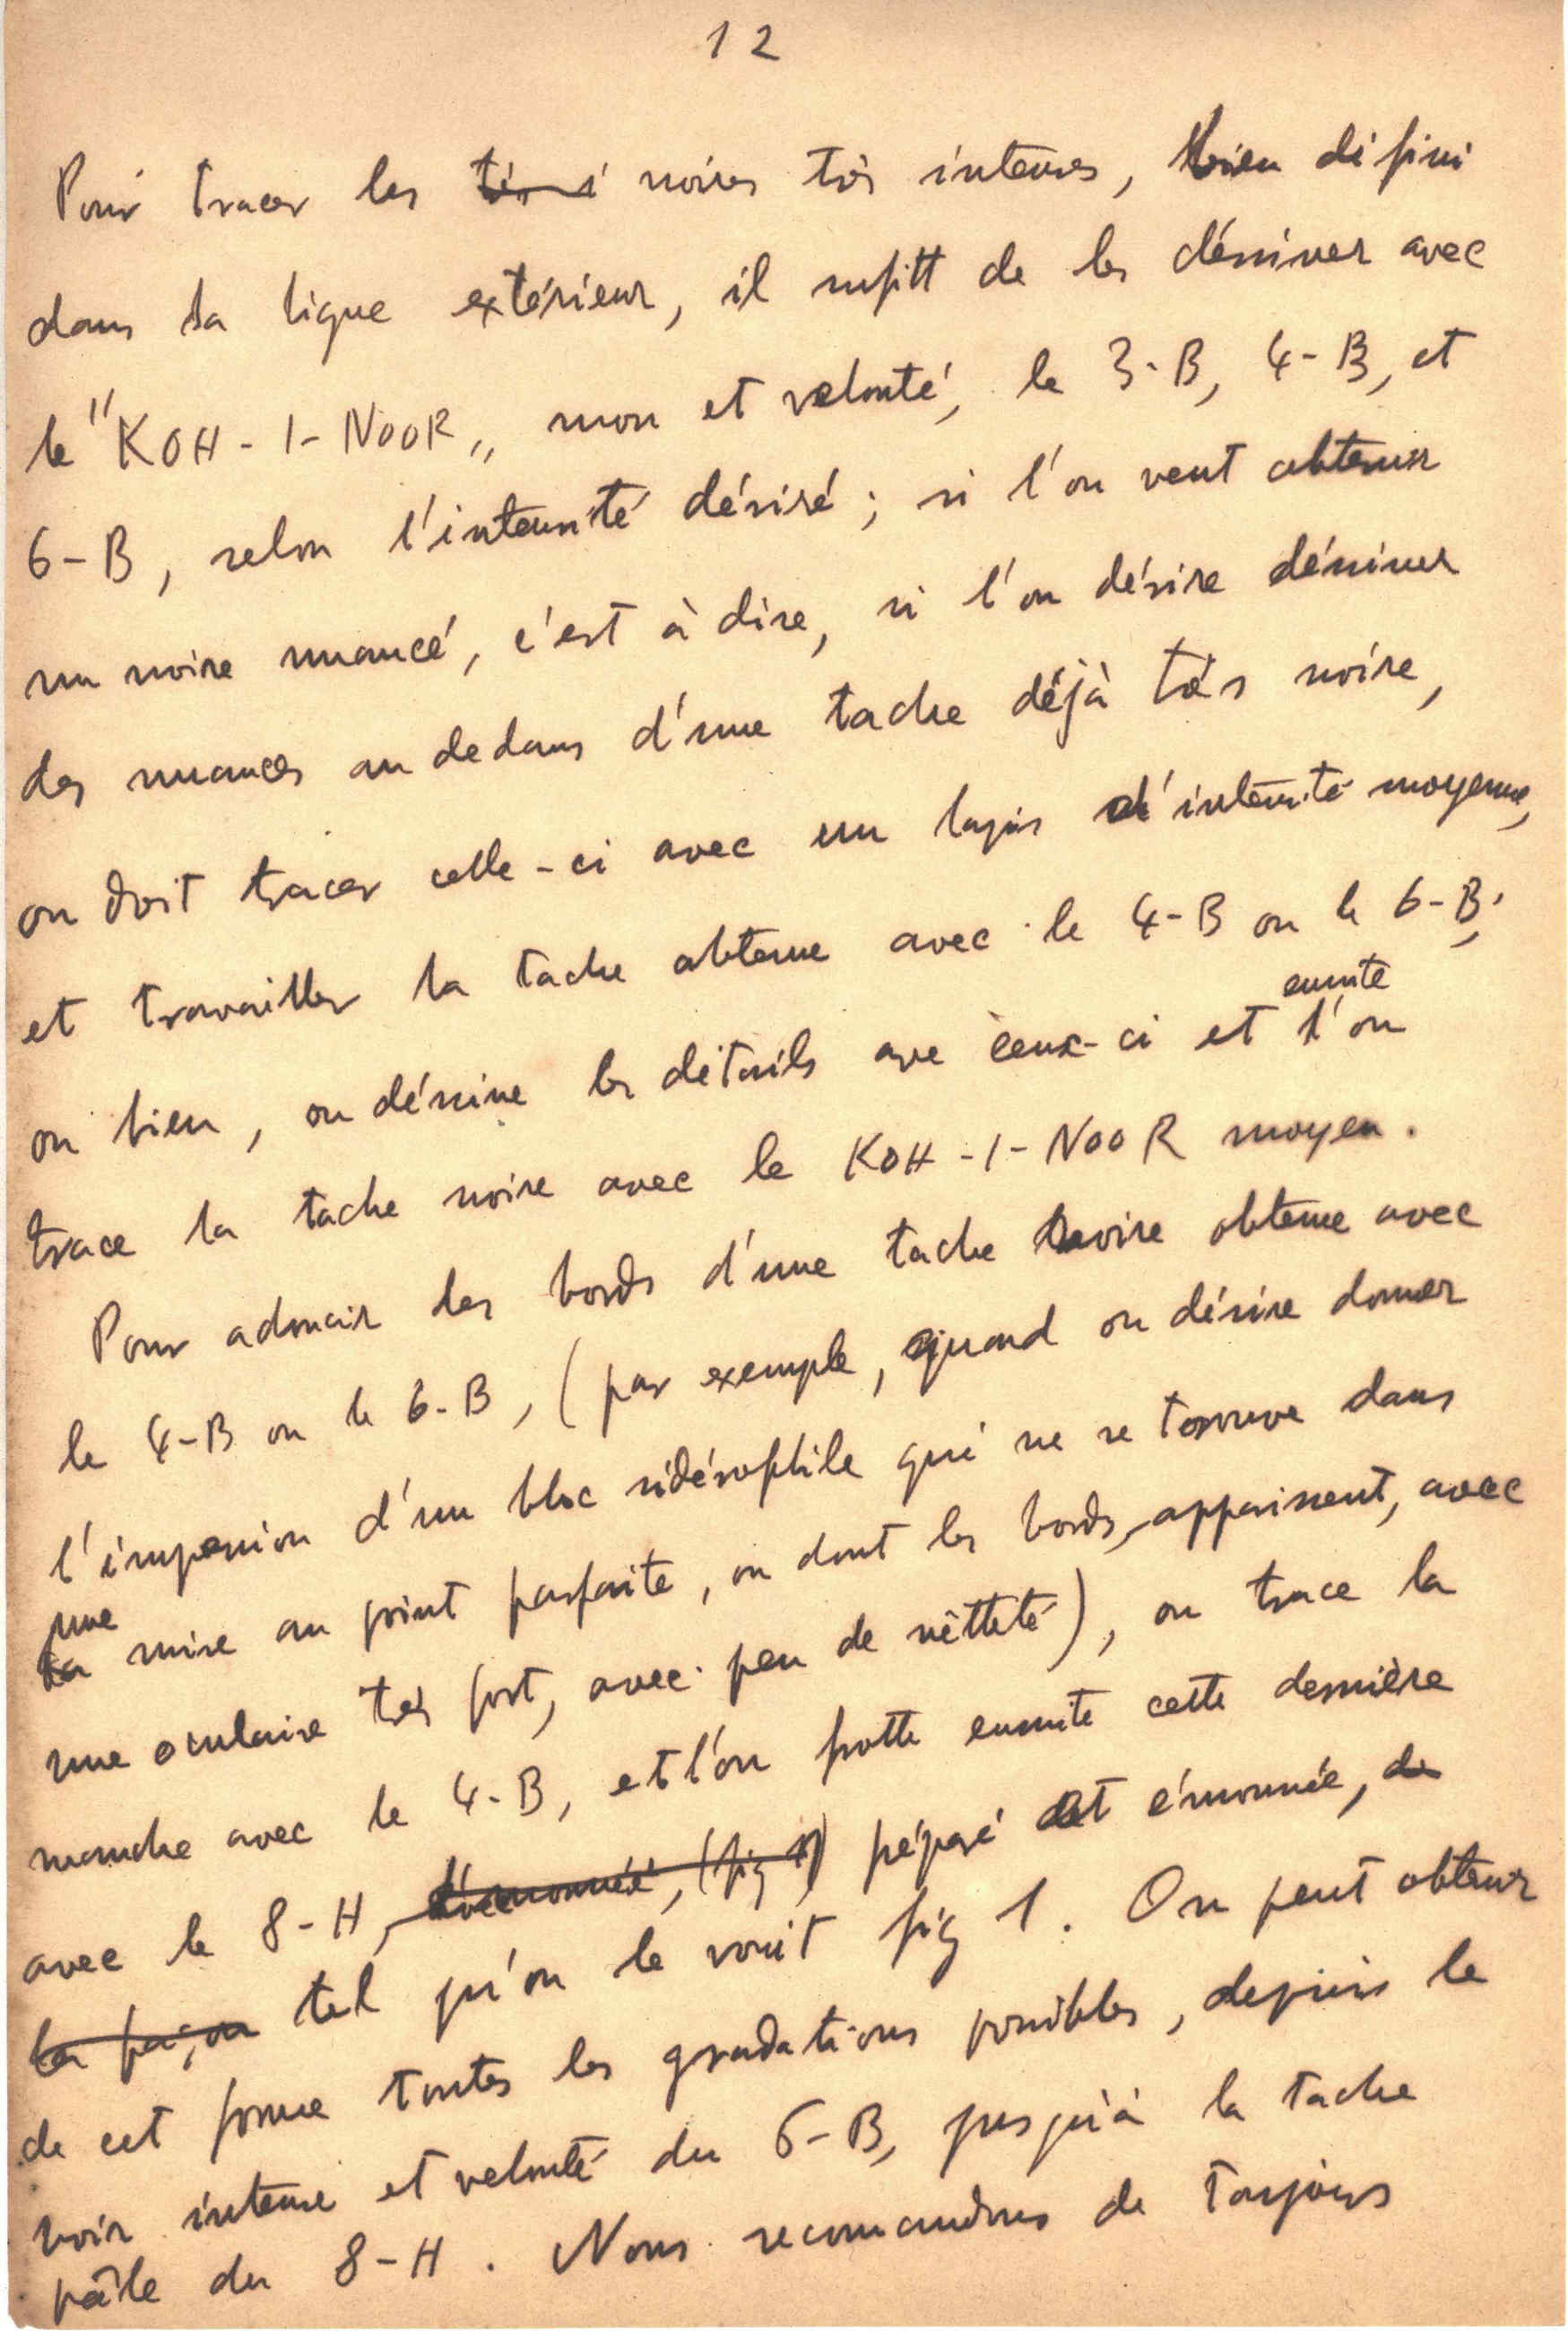 12
Pour tracer les noires très intenses, bien défini
dans la ligne extérieur, il sufitt de les déssiner avec
le "KOH-I-NOOR„ mou et velouté, le 3-B, 4-B, et
6-B, selon l'intensité désiré ; si l'on veut obtenir
un noire nuancé, c'est à dire, si l'on désire déssiner
des nuances au dedans d'une tache déjà très noire,
on doit tracer celle-ci avec un d'intensité moyenne,
et travailler la tache obtenue avec le 4-B ou le 6-B;
ensuite
ou bien, on déssine les détails ave ceux-ci et l'on
trace la tache noire avec le KOH-I-NOOR moyen.
Pour adoucir les bords d'une tache noire obtenue avec
le 4-B ou le 6-B, (par exemple, quand on désire donner
l'impression d'un bloc sidérophile qui ne se trouve dans
une
la mise au point parfaite, ou dont les bords appairssent, avec
une oculaire très fort, avec peu de nètteté), on trace la
manche avec le 4-B, et l'on frotte ensuite cette dernière
avec le 8-H, d'émoussée, (fig 1) préparé et émoussée, de
la façon tel qu'on le voit fig 1. On peut obtenir
de cet forme toutes les gradations possibles, depuis le
noir intense et velouté du 6-B, jusqu'à la tache
pâle du 8-H. Nous recomandons de toujours